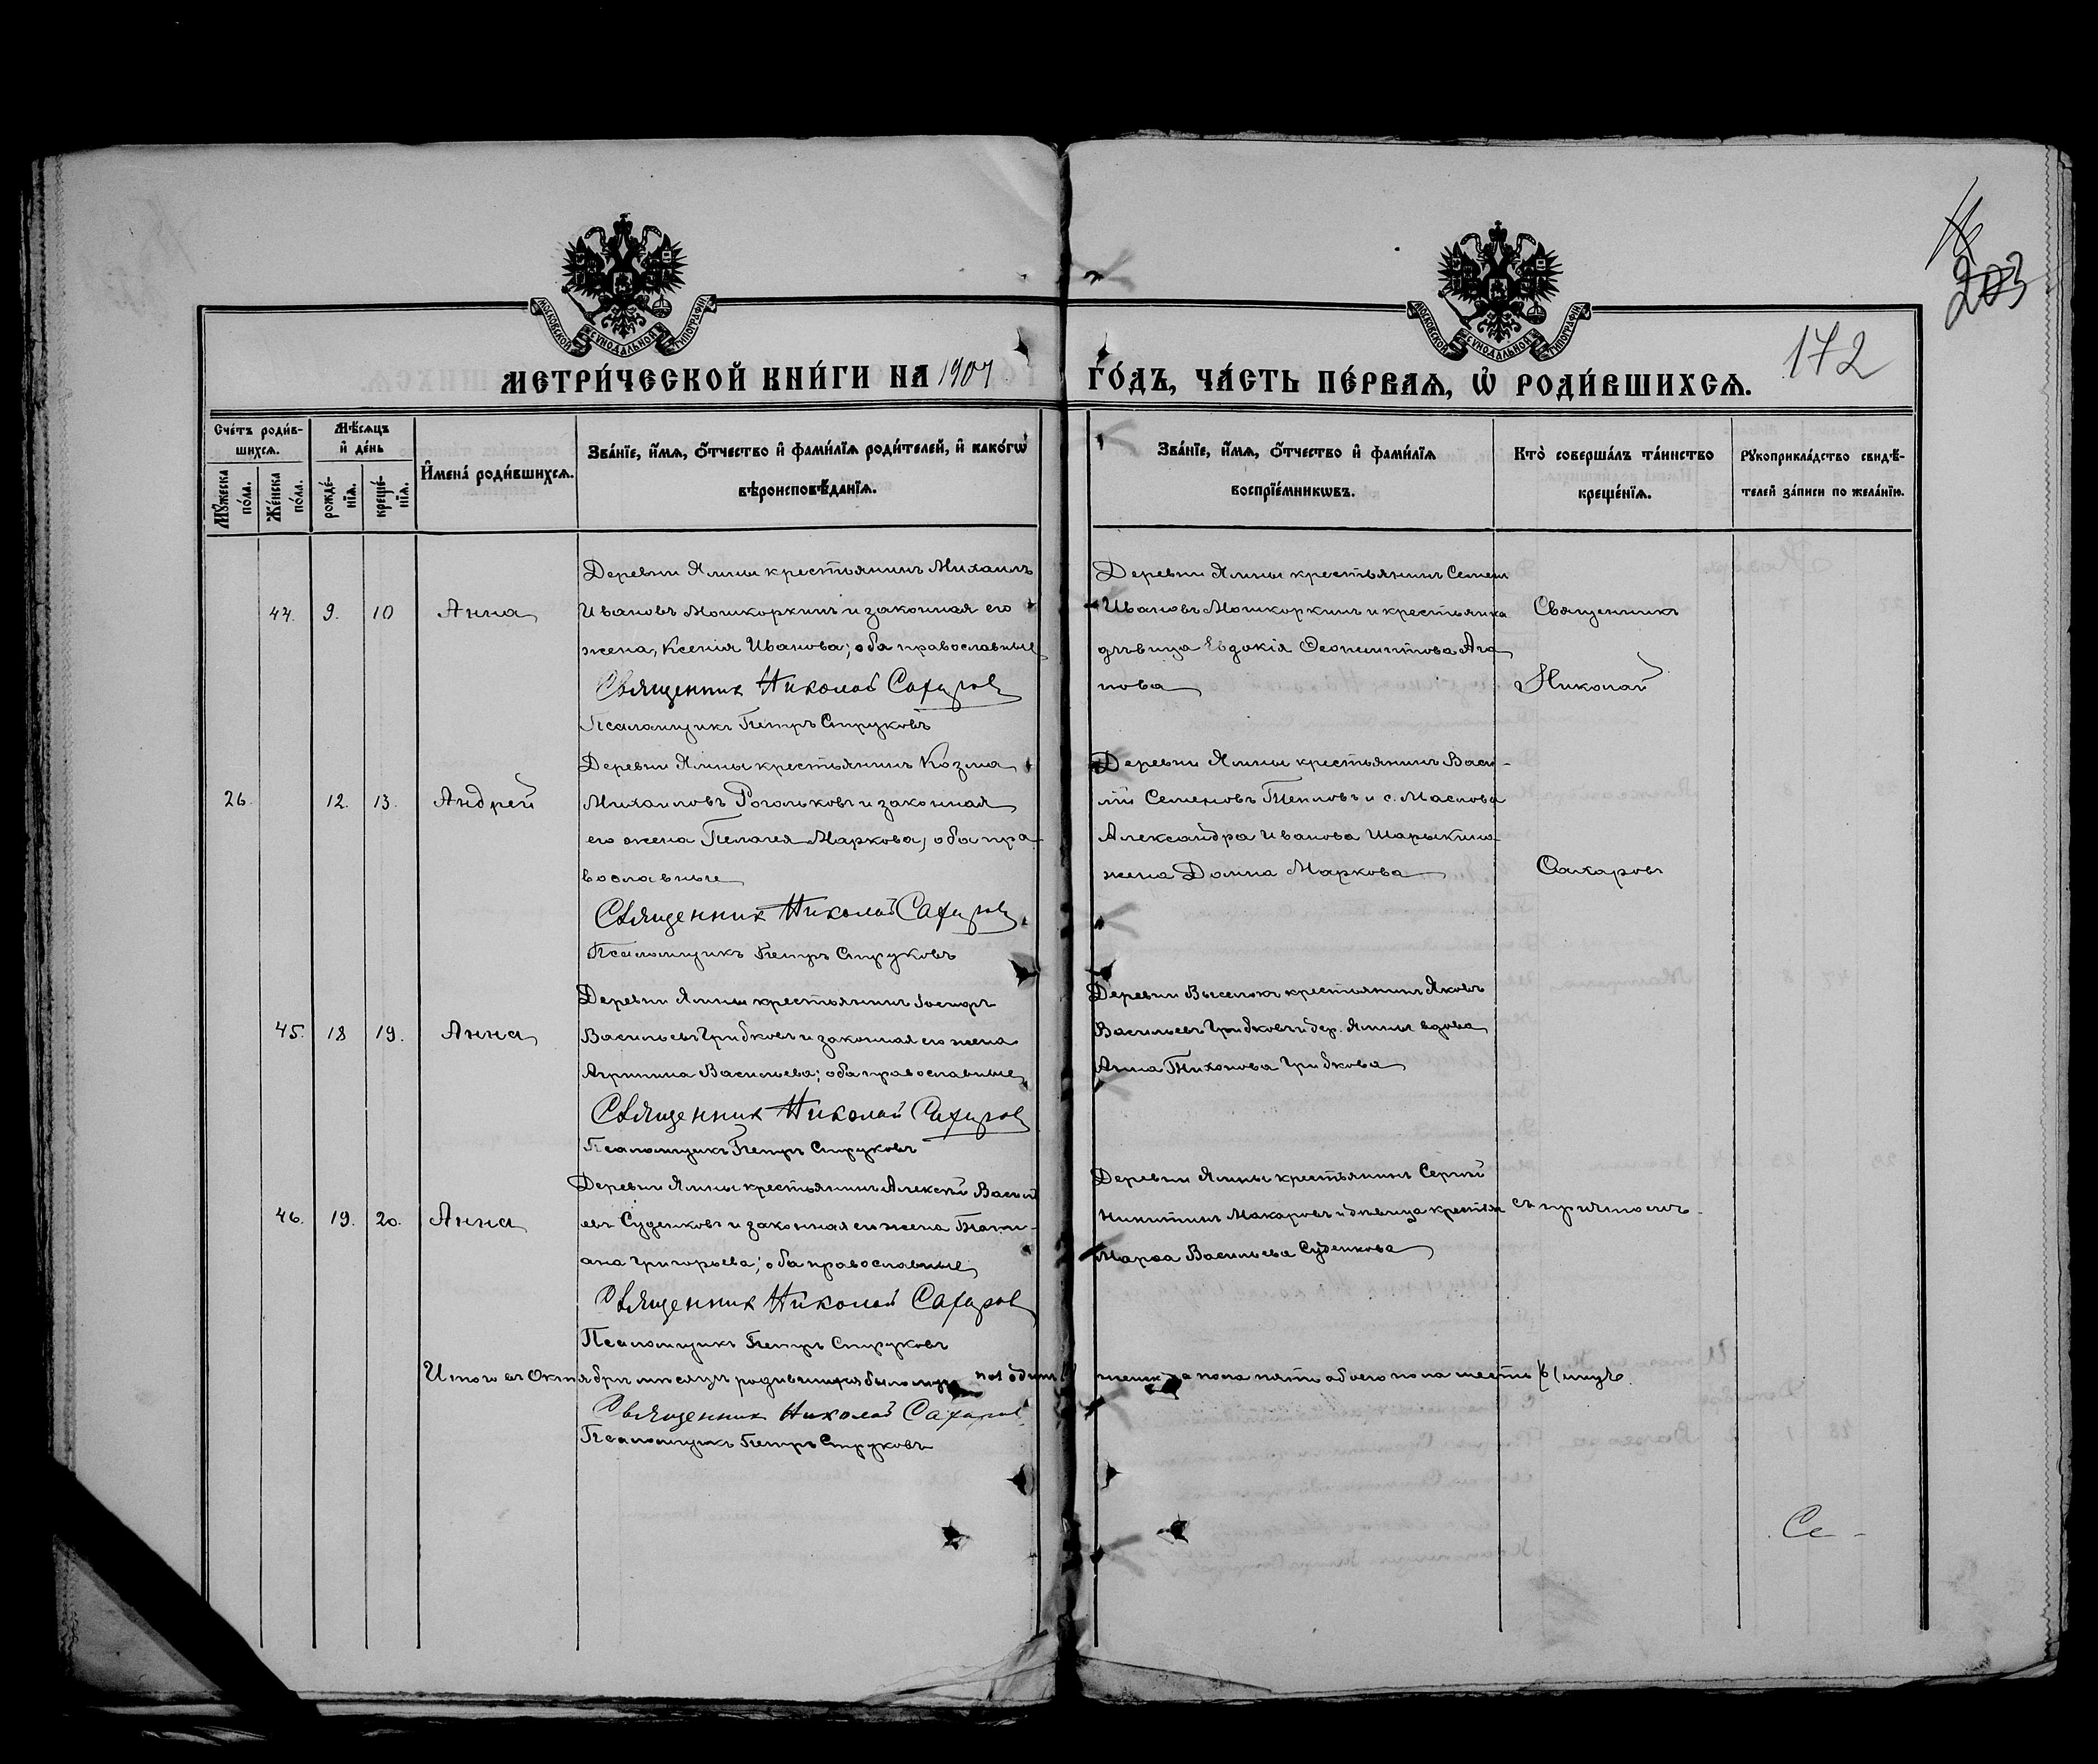 203
172
МОСКОВСКОЙ СУНОДАЛЬНОЙ ТИПОГРАФІИ
МОСКОВСКОЙ СУНОДАЛЬНОЙ ТИПОГРАФІИ
МЕТРИ́ЧЕСКОЙ КНИ́ГИ НА 1907 ГО́ДЪ, ЧА́СТЬ ПЕ́РВАѦ, Ѡ҆ РОДИ́ВШИХСѦ.
Сче́тъ роди́в-
шихсѧ.
Мꙋ́жеска по́ла.
Же́нска по́ла.
Мѣ́сѧцъ
и҆ де́нь
рожде́-нїѧ.
креще́-нїѧ.
И҆мена̀ роди́вшихсѧ.
Зва́нїе, и҆́мѧ, ѻ҆́тчество и҆ фами́лїѧ роди́телей, и҆ како́гѡ
вѣроисповѣ́данїѧ.
Зва́нїе, и҆́мѧ, ѻ҆́тчество и҆ фами́лїѧ
воспрїе́мникѡвъ.
Кто̀ соверша́лъ та́инство
креще́нїѧ.
Рꙋкоприкла́дство свидѣ́-
телей за́писи по жела́нїю.
44. 9. 10 Анна
Деревни Ямны крестьянинъ Михаилъ
Ивановъ Мошкоркинъ и законная его
жена, Ксенія Иванова; оба православные
Священник Николай Сахаров
Псаломщикъ Петръ Струковъ
Деревни Ямны крестьянинъ Семен
Ивановъ Мошкоркинъ и крестьянка
дѣвица Евдокія Ага
пова
Священникъ
Николай
26. 12. 13. Андрей
Деревни Ямны крестьянинъ Козма
Михаиловъ Рогольковъ и законная
его жена Пелагея Маркова; оба пра
вославные
Священник Николай Сахаров
Псаломщикъ Петръ Струковъ
Деревни Ямны крестьянинъ Васи-
лій Семеновъ Тепловъ и с. Маслова
Александра Иванова Шарыкина
жена Домна Маркова
Сахаровъ
45. 18 19. Анна
Деревни Ямны крестьянинъ
Васильевъ Грибковъ и законная его жена
Агрипина Васильева; оба православные
Священник Николай Сахаров
Псаломщикъ Петръ Струковъ
Деревни Выселокъ крестьянинъ Яковъ
Васильевъ Грибковъ и дер. Ямны вдова
Анна Тихонова Грибкова
46. 19. 20. Анна
Деревни Ямны крестьянинъ Алексѣй Васил
евъ Суденковъ и законная его жена Тати-
ана Григорьева; оба православные
Священник Николай Сахаров
Псаломщикъ Петръ Струковъ
Деревни Ямны крестьянинъ Сергій
Никитинъ Макаровъ и дѣвица крестьян
Марѳа Васильева Суденкова
съ причтомъ
Итого въ Октябрѣ мѣсяцѣ родившихся было муж пол одинъ женска пола пять обоего пола шесть (6) штукъ
Священник Николай Сахаров
Псаломщикъ Петръ Струковъ
Се-